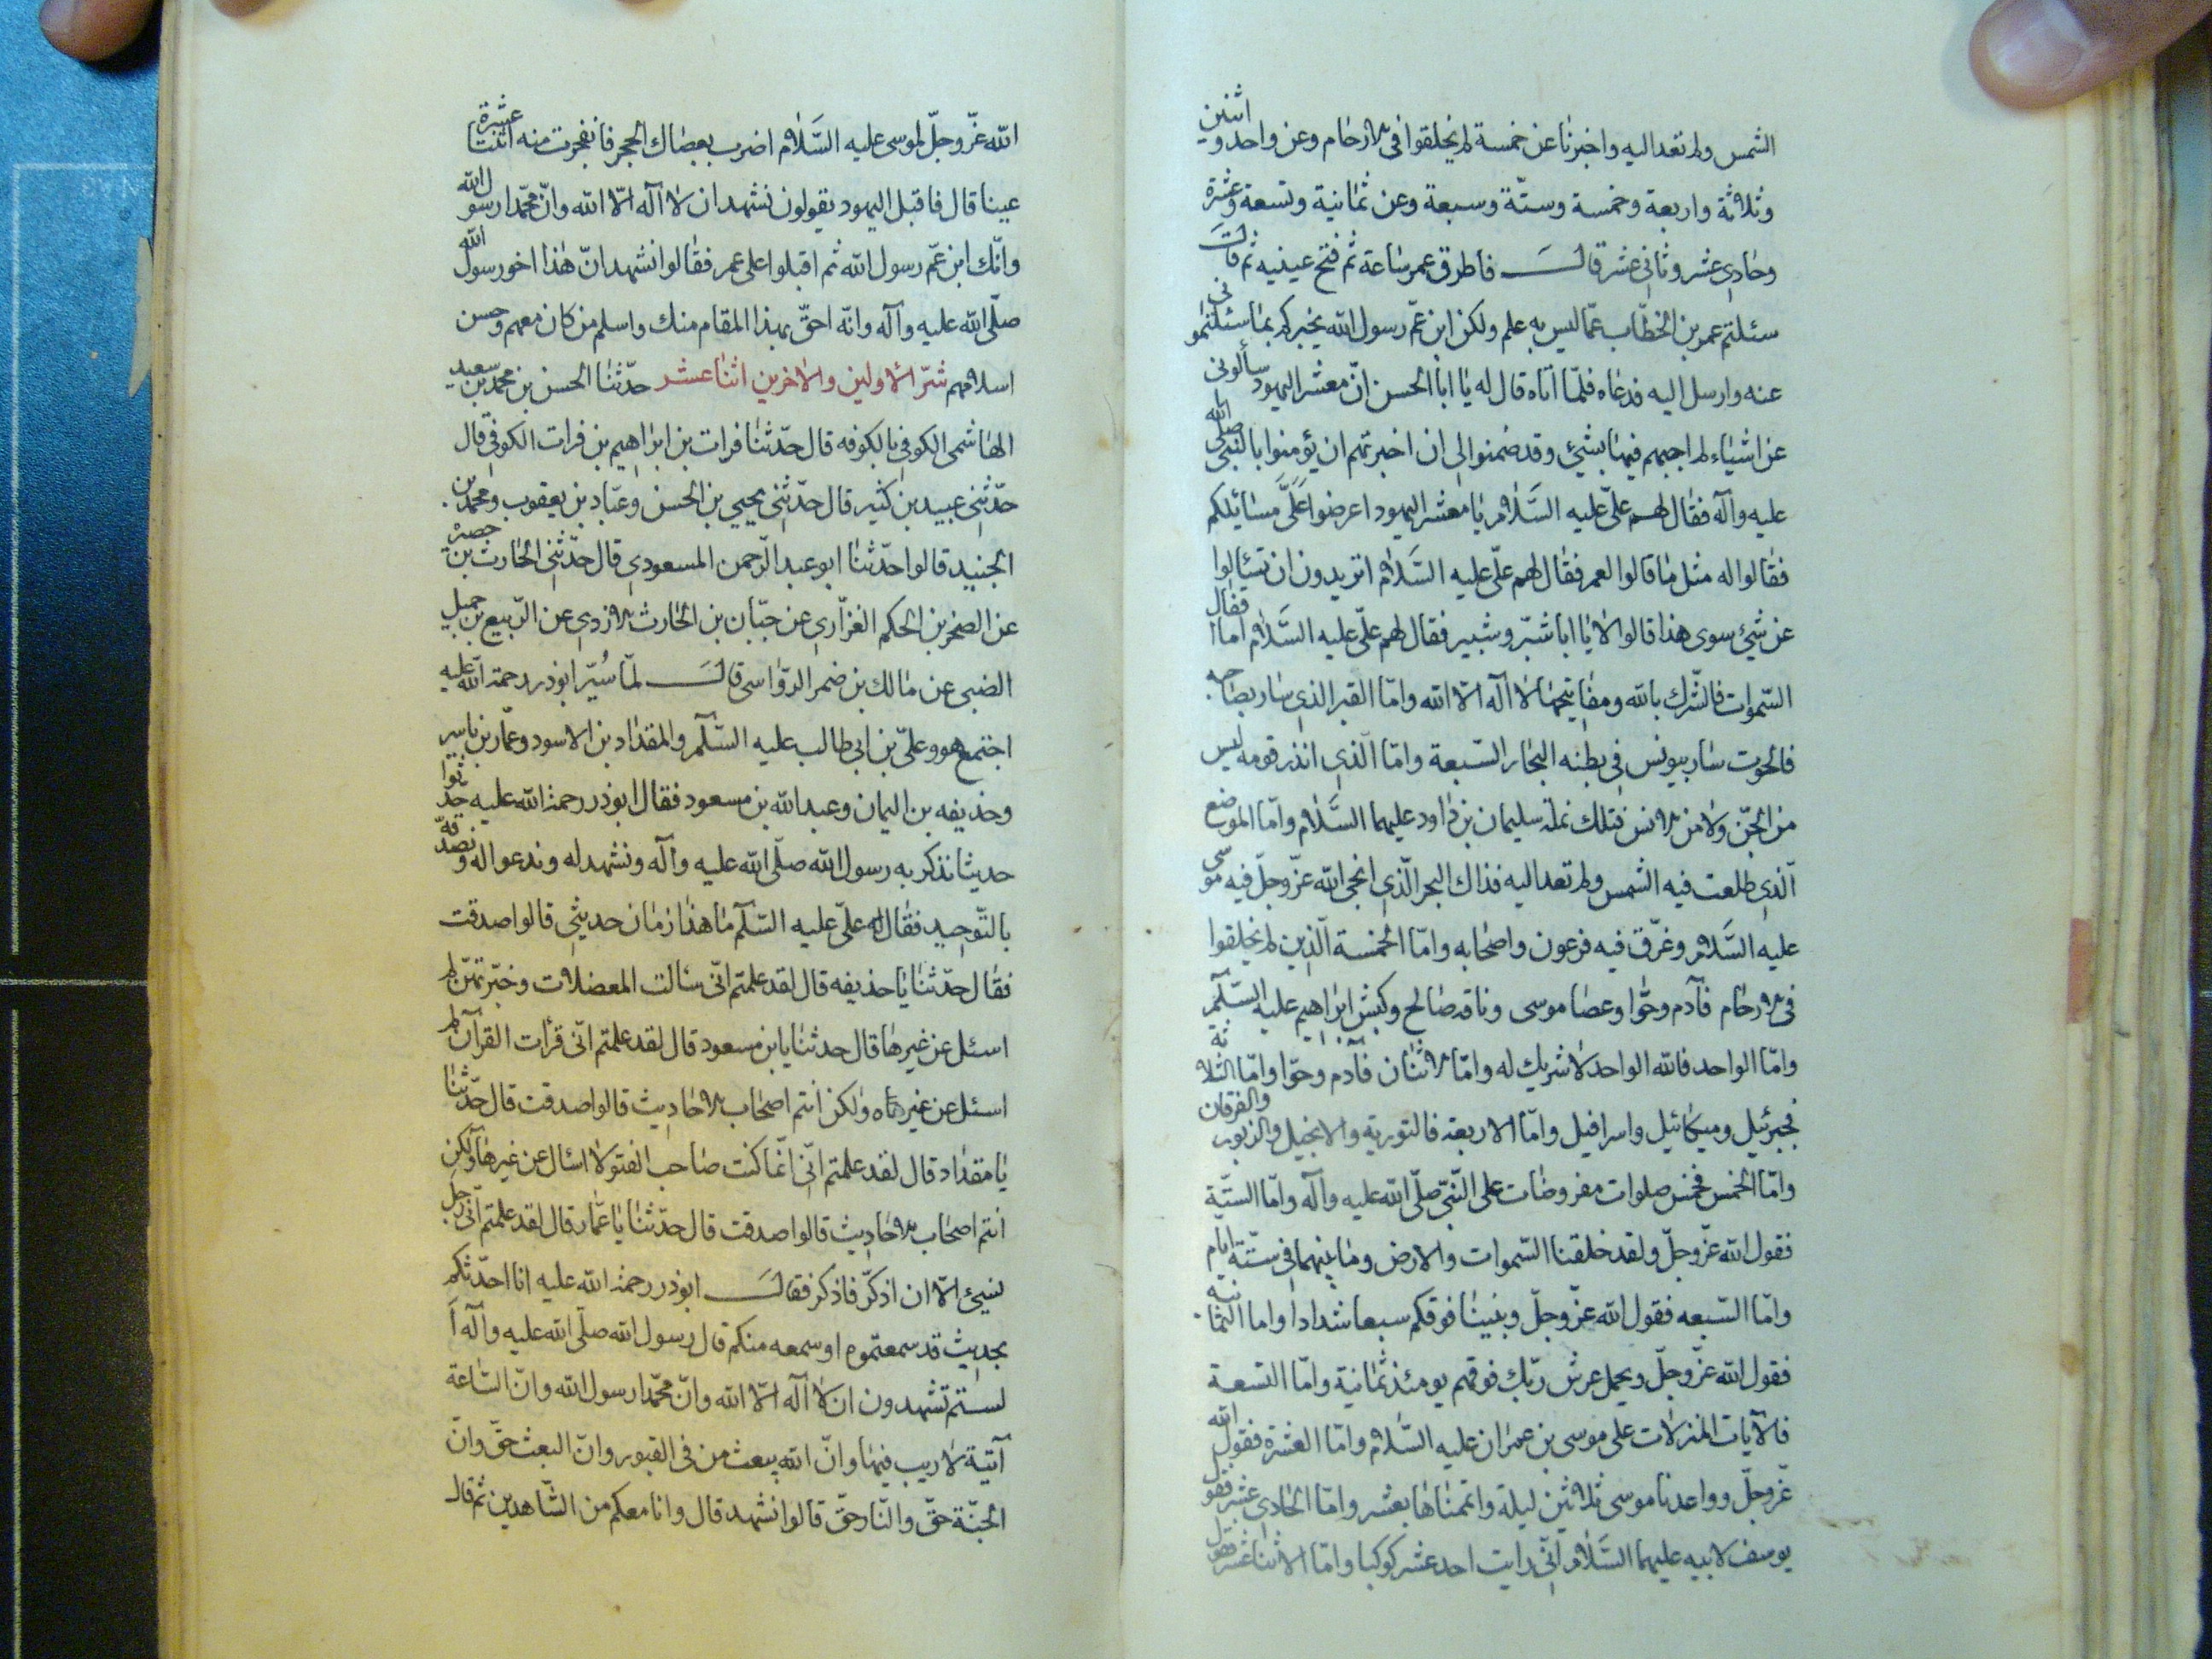 الشمس ولم تعد اليه واخبرنا عن خمسة لم يخلقوا فى الارحام وعن واحد واثنين
وثلاثة واربعة وخمسة وستّة وسبعة وعن ثمانية وتسعة وعشرة
وحادى عشر وثانى عشر قال فاطرق عمر ساعة ثم فتح عينيه ثم قال
سئلتم عمر بن الخطّاب عمّا ليس به علم ولكن ابن عمّ رسول الله يخبركم بما سئلتمونى
عنه وارسل اليه فدعاه فلمّا اتاه قال له يا ابا الحسن انّ معشر اليهود سألونى
عن اشياء لم اجبهم فيها بشئ وقد ضمنوا الى ان اخبرتهم ان يؤمنوا بالنبى صلى الله
عليه وآله فقال لهم علىّ عليه السَّلام يا معشر اليهود اعرضوا علىَّ مسائلكم
فقالوا له مثل ما قالوا لعمر فقال لهم علىّ عليه السَّلام اتريدون ان تسئالوا
عن شئ سوى هذا قالوا لا يا ابا شبّر وشبير فقال لهم علىّ عليه السَّلام امّا اقفال
السّموات فالشّرك بالله ومفاتيحها لا اله الّا الله وامّا القبر الذى سار بصاحبه
فالحوت سار بيونس فى بطنه البحار السّبعة وامّا الّذى انذر قومه ليس
من الجنّ ولا من الانس فتلك نملة سليمان بن داود عليهما السَّلام وامّا الموضع
الّذى طلعت فيه الشمس ولم تعد اليه فذاك البحر الّذى انجى الله عزّ وجلّ فيه موسى
عليه السَّلام وغرّق فيه فرعون واصحابه وامّا الخمسة الّذين لم يخلقوا
فى الارحام فآدم وحوّا وعصا موسى وناقة صالح وكبش ابراهيم عليه السّلم
وامّا الواحد فالله الواحد لا شريك له وامّا الاثنان فآدم وحوّا وامّا الثلاثة
فجبرئيل وميكائيل واسرافيل وامّا الاربعة فالتورية والانجيل والزبور والفرقان
وامّا الخمس فخمس صلوات مفروضات على النّبىّ صلّى الله عليه وآله وامّا الستّة
فقول الله عزّ وجلّ ولقد خلقنا السّموات والارض وما بينهما فى ستّة ايام
وامّا السّبعه فقول الله عزّ وجلّ وبنينا فوقكم سبعا شدادا واما الثمانية
فقول الله عزّ وجلّ ويحمل عرش ربّك فوقهم يومئذ ثمانية وامّا التسعة
فالآيات المنزلات على موسى بن عمران عليه السّلام وامّا العشرة فقول الله
عزّ وجلّ وواعدنا موسى ثلاثين ليلة واتممناها بعشر وامّا الحادى عشر فقول
يوسف لابيه عليهما السَّلام انّى رايت احد عشر كوكبا وامّا الاثنا عشر فقول
الله عزّ وجلّ لموسى عليه السَّلام اضرب بعصاك الحجر فانفجرت منه اثنتا عشرة
عينا قال فاقبل اليهود يقولون نشهد ان لا اله الّا الله وانّ محمّدا رسول الله
وانّك ابن عمّ رسول الله ثم اقبلوا على عمر فقالوا نشهد انّ هذا اخو رسول الله
صلّى الله عليه وآله وانّه احقّ بهذا المقام منك واسلم من كان معهم وحسن
اسلامهم شرّ الاولين والاخرين اثنا عشر حدّثنا الحسن بن محمد بن سعيد
الهاشمى الكوفى بالكوفه قال حدّثنا فرات بن ابراهيم بن فرات الكوفى قال
حدّثنى عبيد بن كثير قال حدّثنى يحيى بن الحسن وعبّاد بن يعقوب ومحمد بن
الجنيد قالوا حدّثنا ابو عبد الرّحمن المسعودى قال حدّثنى الحارث بن حصيرة
عن الصخر بن الحكم الفزّارى عن حبّان بن الحارث الازدى عن الرّبيع بن جميل
الضبى عن مالك بن ضمر الروّاسى قال لمّا سُيّر ابوذر رحمة الله عليه
اجتمع هو وعلىّ بن ابى طالب عليه السَّلم والمقداد بن الاسود وعمّار بن ياسر
وحذيفه بن اليمان وعبد الله بن مسعود فقال ابوذر رحمة الله عليه حدّثوا
حديثا نذكر به رسول الله صلّى الله عليه وآله ونشهد له وندعوا له ونصدّقه
بالتّوحيد فقال له علىّ عليه السّلم ما هذا زمان حديثى قالوا صدقت
فقال حدّثنا يا حذيفه قال لقد علمتم انّى سالت المعضلات وخبّرتهنّ لم
اسئل عن غيرها قال حدثنا يا بن مسعود قال لقد علمتم انّى قرأت القرآن لم
اسئل عن غيره ولكن انتم اصحاب الاحاديث قالوا صدقت قال حدّثنا
يا مقداد قال لقد علمتم انّى انّما كنت صاحب الفتو لا اسئال عن غيرها ولكن
انتم اصحاب الاحاديث قالوا صدقت قال حدّثنا يا عمّار قال لقد علمتم انّى رجل
نسىّ الّا ان اذكّر فاذكر فقال ابوذر رحمة الله عليه انا احدّثكم
بحديث قد سمعتموه او سمعه منكم قال رسول الله صلّى الله عليه وآله أ
لستم تشهدون ان لا اله الّا الله وانّ محمّدا رسول الله وانّ السّاعة
آتية لا ريب فيها وانّ الله يبعث من فى القبور وانّ البعث حقّ وانّ
الجنّة حقّ والنّار حقّ قالوا نشهد قال وانا معكم من الشّاهدين ثم قال